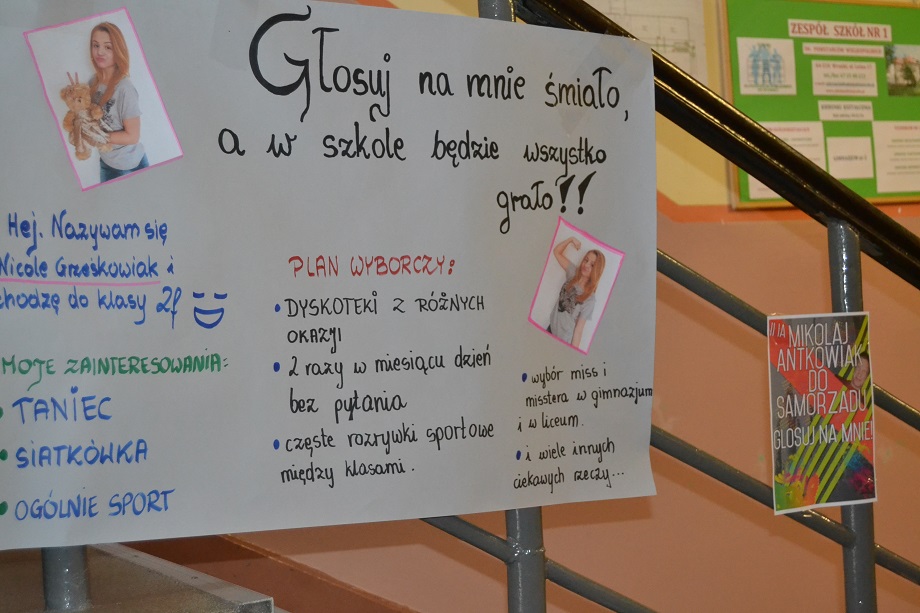 Głosuj na mnie śmiało,
a w szkole będzie wszystko
grało!!
Hej. Nazywam się
Nicole Grześkowiak i
chodzę do klasy 2f
MOJE ZAINTERESOWANIA:
TANIEC
SIATKÓWKA
OGÓLNIE SPORT
PLAN WYBORCZY:
DYSKOTEKI Z RÓŻNYCH
OKAZJI
2 razy w miesiącu dzień
bez pytania
częste rozrywki sportowe
między klasami.
wybór miss i
misstera w gimnazjum
i w liceum.
i wiele innych
ciekawych rzeczy...
ZESPÓŁ SZKÓŁ NR 1
II IA MIKOŁAJ
ANTKOWIAK
DO
SAMORZĄDU
GŁOSUJ NA MNIE!